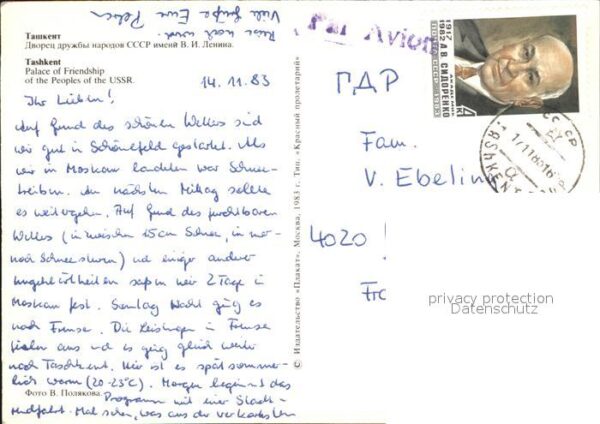 Ташкент
Дворец дружбы народов СССР имени В. И. Ленина.
Tashkent
Palace of Friendship
of the Peoples of the USSR.
Viele Grüße Eure
14.11.83
Ihr Lieben!
Auf Grund des schönen Wetters sind
wir gut in Schönefeld gestartet. Als
wir in Moskau landeten war Schnee-
treiben. Am nächsten Mittag sollte
es weitergehen. Auf Grund des furchtbaren
Wetters (inzwischen 15cm Schnee, immer
noch Schneesturm) und einiger anderer
saßen wir 2 Tage in
Moskau fest. Samstag Nacht ging es
nach Frunse. Die Leistungen in Frunse
fielen aus und es ging gleich weiter
nach Taschkent. Hier ist es spätsommer-
lich warm (20-23°C). Morgen beginnt das
Programm mit einer Stadt-
rundfahrt. Mal sehen, was aus der verkorksten
Reise noch wird.
Фото В. Полякова.
© Издательство «Плакат», Москва, 1983 г. Тип. «Красный пролетарий»
Par Avion
1917
1982 А.В. СИДОРЕНКО
АКАДЕМИК
4
ГДР
Fam.
V. Ebeling
4020!
privacy protection
Datenschutz